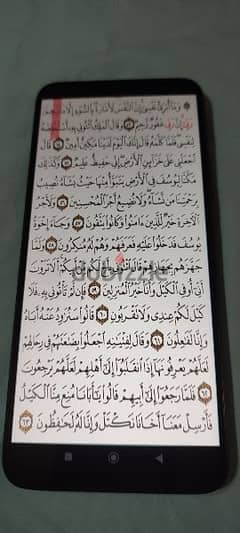 وَمَا أُبَرِّئُ نَفْسِي إِنَّ النَّفْسَ لَأَمَّارَةٌ بِالسُّوءِ إِلَّا مَا رَحِمَ
رَبِّي إِنَّ رَبِّي غَفُورٌ رَّحِيمٌ ٥٣ وَقَالَ الْمَلِكُ ائْتُونِي بِهِ أَسْتَخْلِصْهُ
لِنَفْسِي فَلَمَّا كَلَّمَهُ قَالَ إِنَّكَ الْيَوْمَ لَدَيْنَا مَكِينٌ أَمِينٌ ٥٤ قَالَ
اجْعَلْنِي عَلَىٰ خَزَائِنِ الْأَرْضِ إِنِّي حَفِيظٌ عَلِيمٌ ٥٥ وَكَذَٰلِكَ
مَكَّنَّا لِيُوسُفَ فِي الْأَرْضِ يَتَبَوَّأُ مِنْهَا حَيْثُ يَشَاءُ نُصِيبُ
بِرَحْمَتِنَا مَن نَّشَاءُ وَلَا نُضِيعُ أَجْرَ الْمُحْسِنِينَ ٥٦ وَلَأَجْرُ
الْآخِرَةِ خَيْرٌ لِّلَّذِينَ آمَنُوا وَكَانُوا يَتَّقُونَ ٥٧ وَجَاءَ إِخْوَةُ
يُوسُفَ فَدَخَلُوا عَلَيْهِ فَعَرَفَهُمْ وَهُمْ لَهُ مُنكِرُونَ ٥٨ وَلَمَّا
جَهَّزَهُم بِجَهَازِهِمْ قَالَ ائْتُونِي بِأَخٍ لَّكُم مِّنْ أَبِيكُمْ أَلَا تَرَوْنَ
أَنِّي أُوفِي الْكَيْلَ وَأَنَا خَيْرُ الْمُنزِلِينَ ٥٩ فَإِن لَّمْ تَأْتُونِي بِهِ فَلَا
كَيْلَ لَكُمْ عِندِي وَلَا تَقْرَبُونِ ٦٠ قَالُوا سَنُرَاوِدُ عَنْهُ أَبَاهُ
وَإِنَّا لَفَاعِلُونَ ٦١ وَقَالَ لِفِتْيَانِهِ اجْعَلُوا بِضَاعَتَهُمْ فِي رِحَالِهِمْ
لَعَلَّهُمْ يَعْرِفُونَهَا إِذَا انقَلَبُوا إِلَىٰ أَهْلِهِمْ لَعَلَّهُمْ يَرْجِعُونَ
٦٢ فَلَمَّا رَجَعُوا إِلَىٰ أَبِيهِمْ قَالُوا يَا أَبَانَا مُنِعَ مِنَّا الْكَيْلُ
فَأَرْسِلْ مَعَنَا أَخَانَا نَكْتَلْ وَإِنَّا لَهُ لَحَافِظُونَ ٦٣
dubizzle